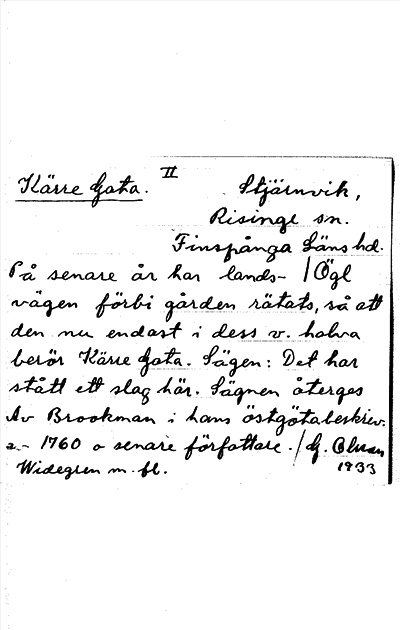 Kärre Gata. II Stjärnvik,
Risinge sn.
Finspånga Läns hd.
På senare år har lands- / Ögl
vägen förbi gården rätats, så att
den nu endast i dess v. halva
berör Kärre Gata. Sägen: Det har
stått ett slag här. Sägnen återges
Av Brookman i hans östgötabeskriv.
a. 1760 o senare författare. / G. Olson
Widegren m. fl. 1933